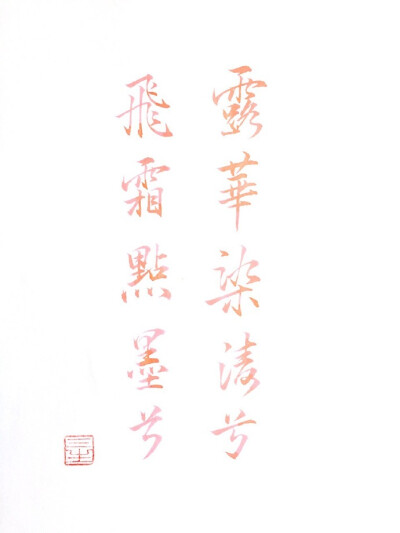 露華染兮
飛霜點墨兮